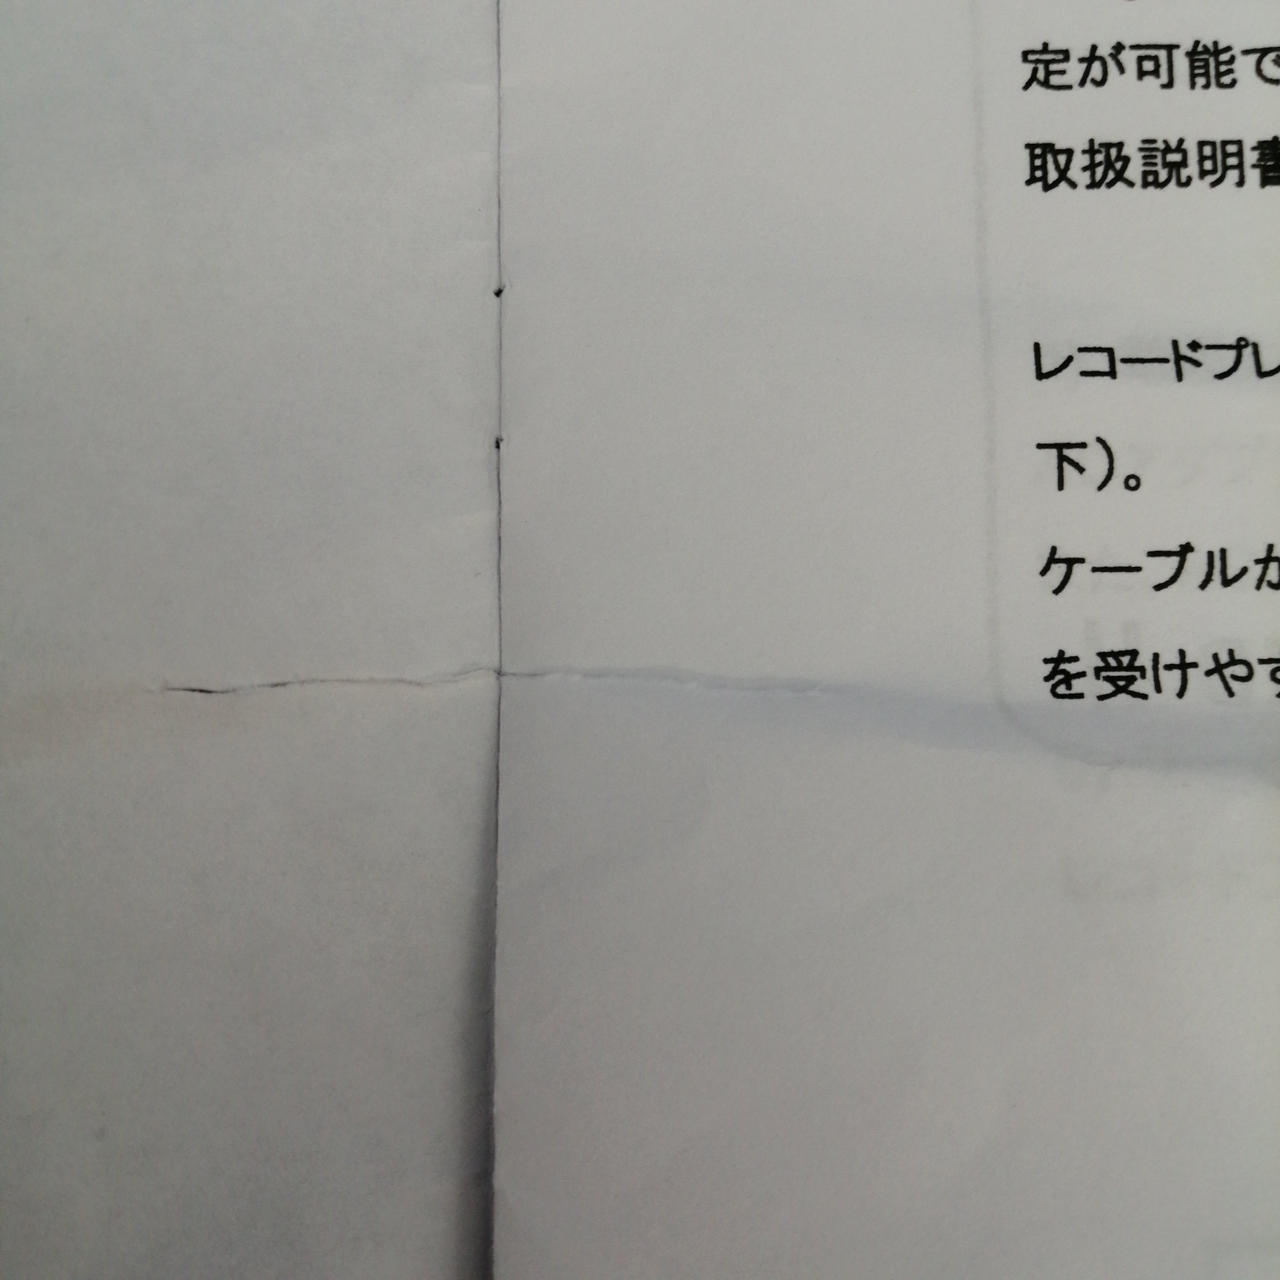 定が可能で
取扱説明書
レコードプレ
下)。
ケーブルか
を受けやす